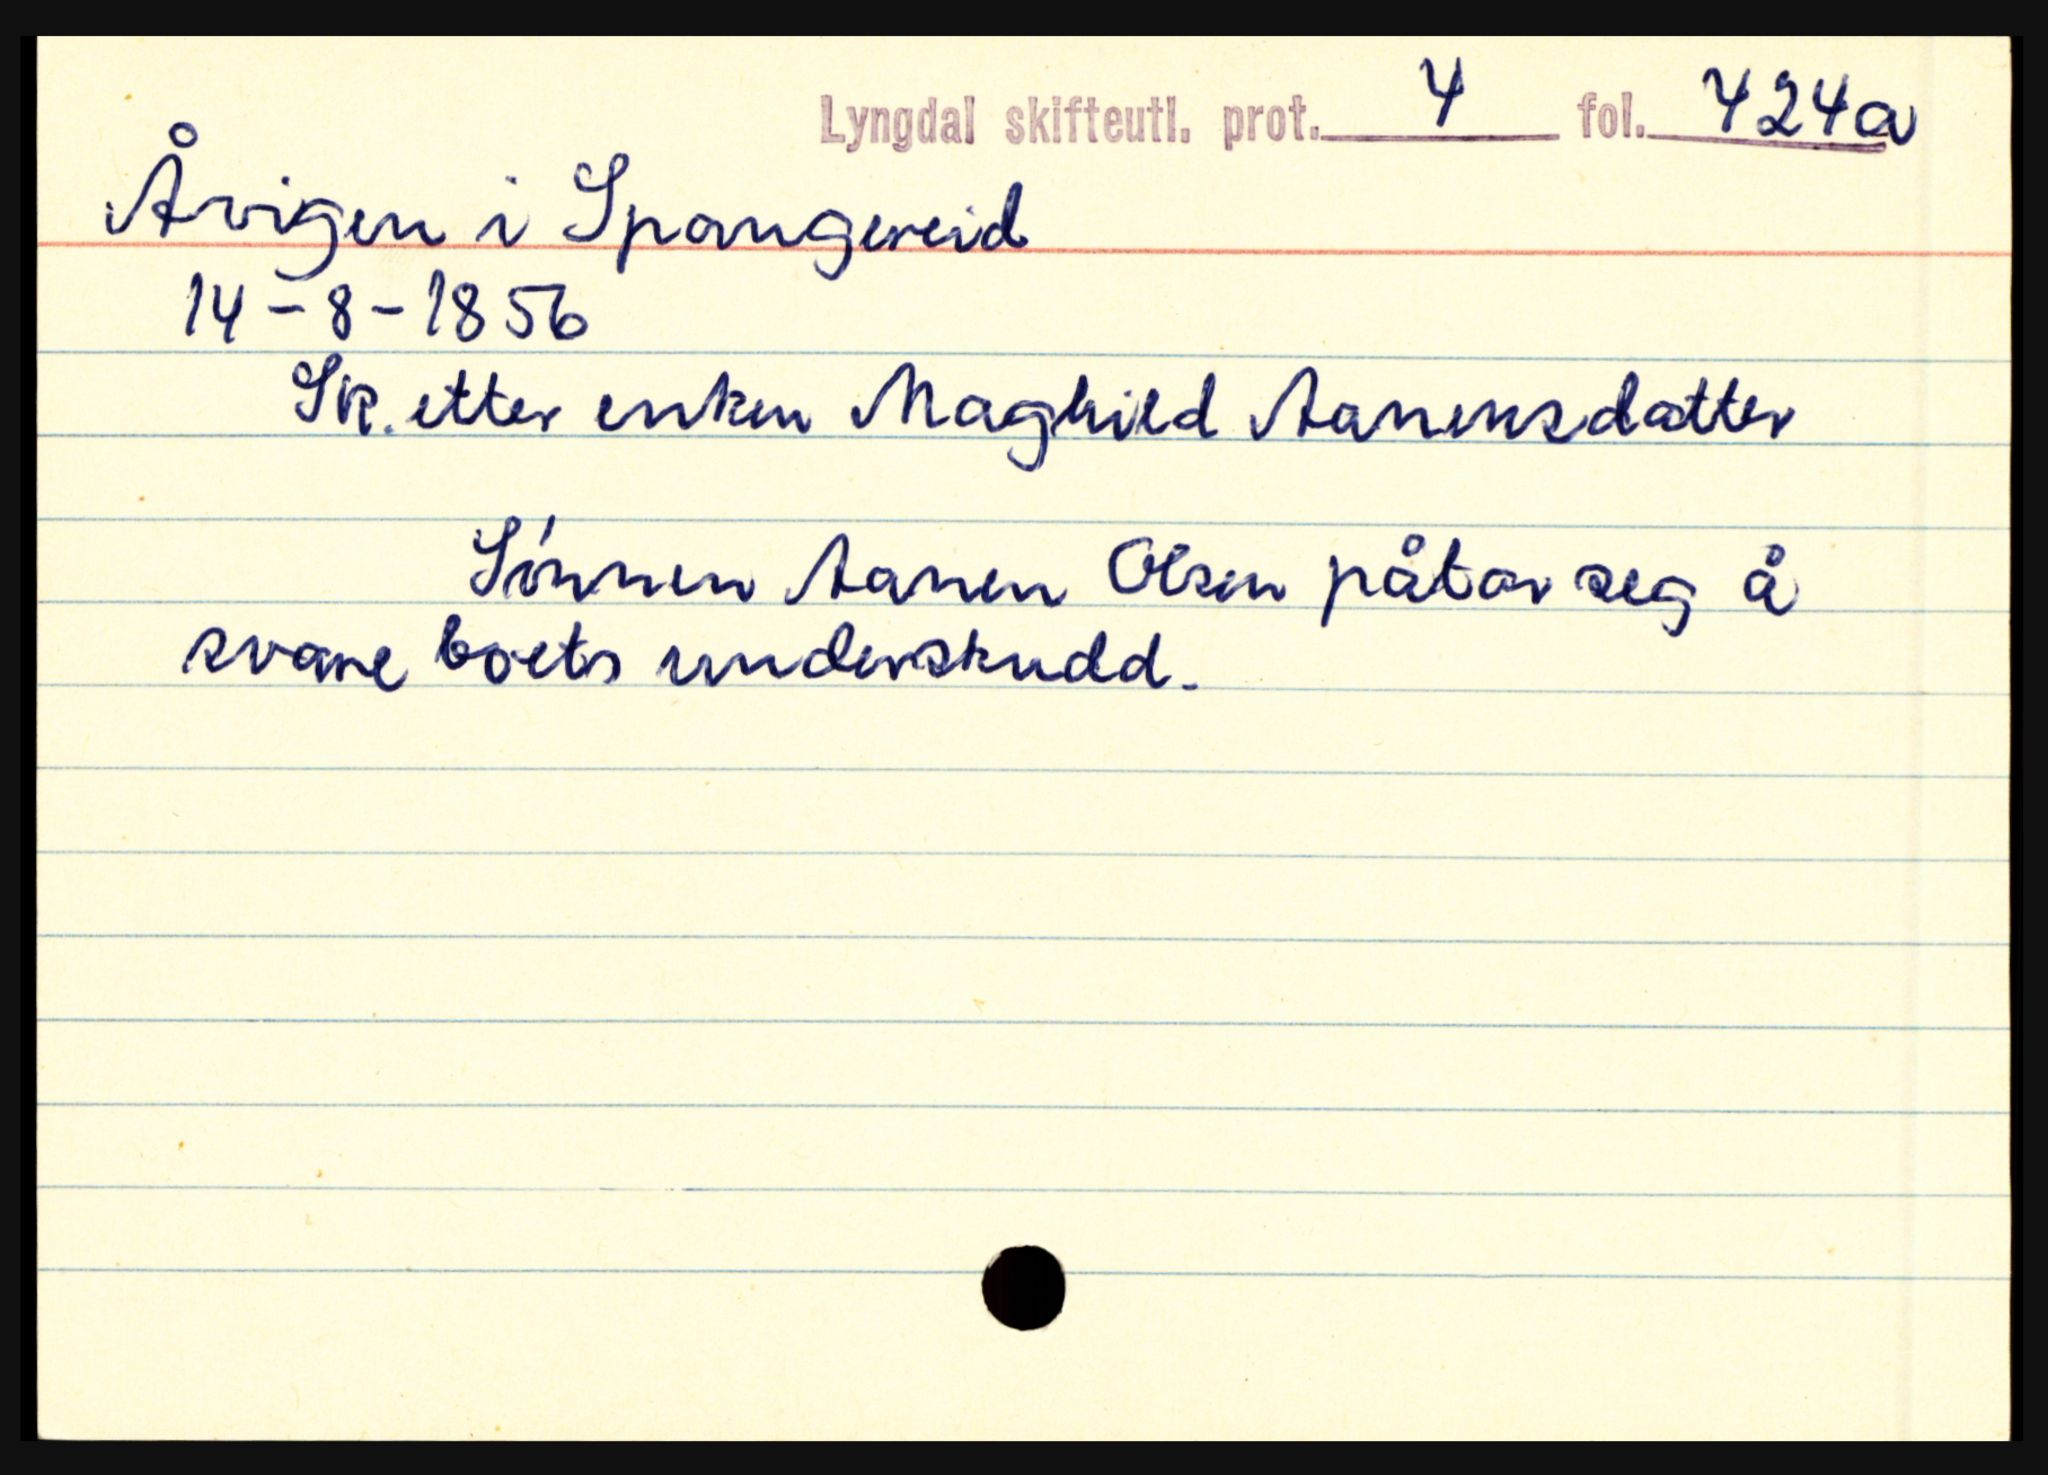 Lyngdal skifteutl. prot. 4 fol. 424a
Åvigen i Spangereid
14-8-1856
Sk. etter enken Maghild Aanensdatter
Sønnen Aanen Olsen påtar seg å
svare boets underskudd.